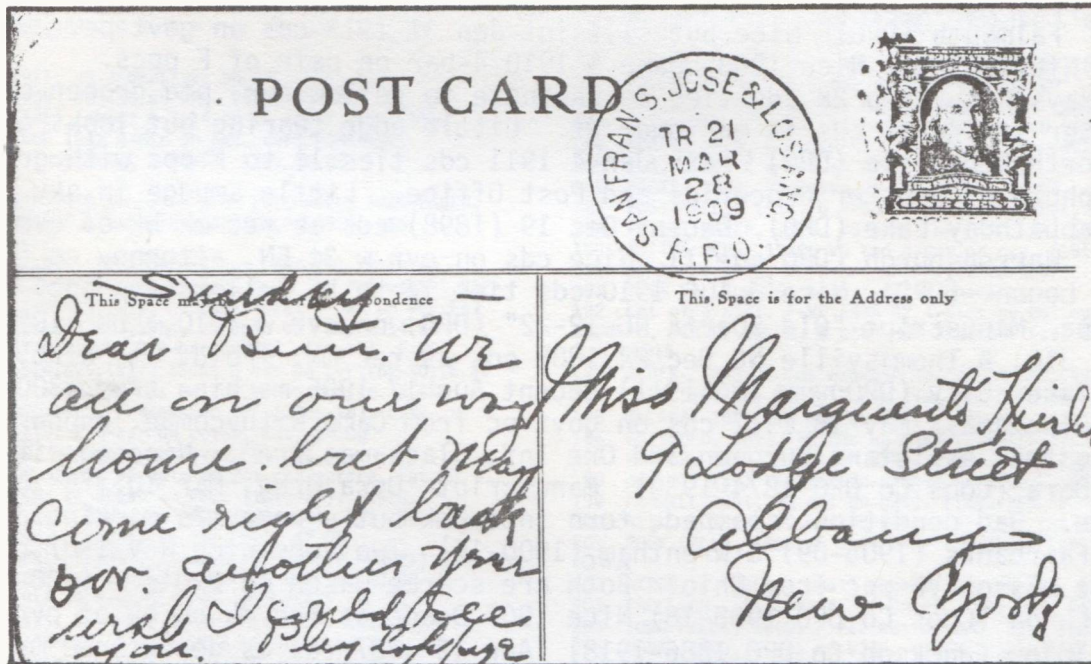 POST CARD
SAN FRAN. S. JOSE & LOS ANG.
TR 21
MAR
28
1939
R.P.O.
This Space may be used for Correspondence
This Space is for the Address only
Dear Bun. We
all on our way
home. but may
come right back
for another year
wish I could see
you.
Miss Marguerite
9 Lodge Street
Albany
New York